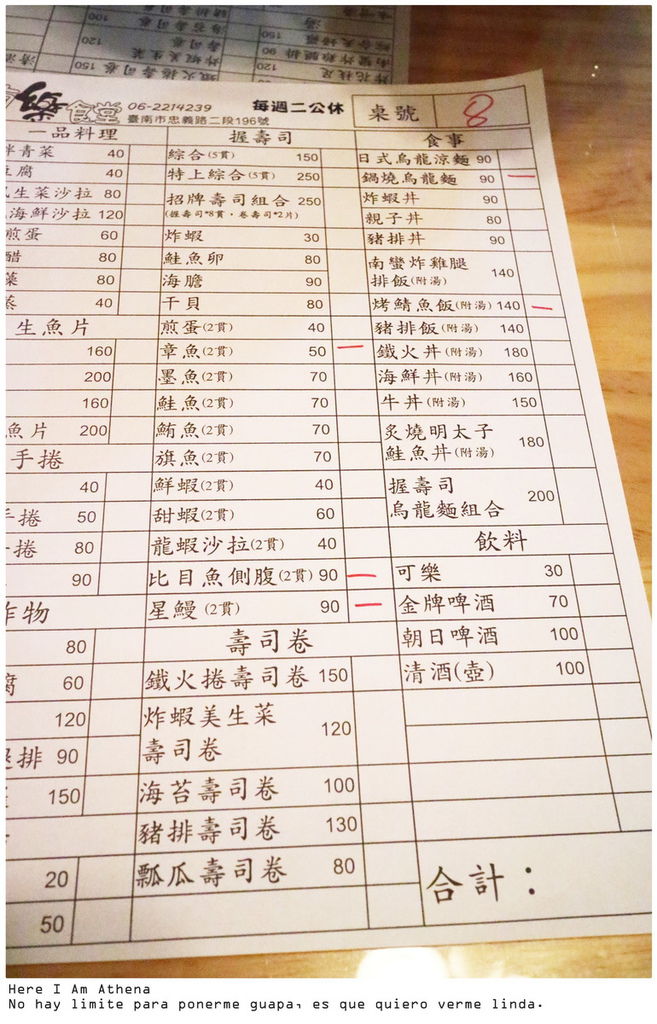 樂食堂 06-2214239 每週二公休
臺南市忠義路二段196號
桌號 8
一品料理
拌青菜 40
豆腐 40
生菜沙拉 80
海鮮沙拉 120
煎蛋 60
醋 80
菜 80
蒸 40
生魚片
160
200
160
魚片 200
手捲
40
手捲 50
捲 80
90
炸物
80
腐 60
120
腿排 90
150
20
50
握壽司
綜合(5貫) 150
特上綜合(5貫) 250
招牌壽司組合 250
(握壽司*8貫,卷壽司*2片)
炸蝦 30
鮭魚卵 80
海膽 90
干貝 80
煎蛋(2貫) 40
章魚(2貫) 50
墨魚(2貫) 70
鮭魚(2貫) 70
鮪魚(2貫) 70
旗魚(2貫) 70
鮮蝦(2貫) 40
甜蝦(2貫) 60
龍蝦沙拉(2貫) 40
比目魚側腹(2貫) 90
星鰻(2貫) 90
壽司卷
鐵火捲壽司卷 150
炸蝦美生菜
壽司卷 120
海苔壽司卷 100
豬排壽司卷 130
瓢瓜壽司卷 80
食事
日式烏龍涼麵 90
鍋燒烏龍麵 90
炸蝦丼 90
親子丼 80
豬排丼 90
南蠻炸雞腿
排飯(附湯) 140
烤鯖魚飯(附湯) 140
豬排飯(附湯) 140
鐵火丼(附湯) 180
海鮮丼(附湯) 160
牛丼(附湯) 150
炙燒明太子
鮭魚丼(附湯) 180
握壽司
烏龍麵組合 200
飲料
可樂 30
金牌啤酒 70
朝日啤酒 100
清酒(壺) 100
合計:
Here I Am Athena
No hay limite para ponerme guapa, es que quiero verme linda.